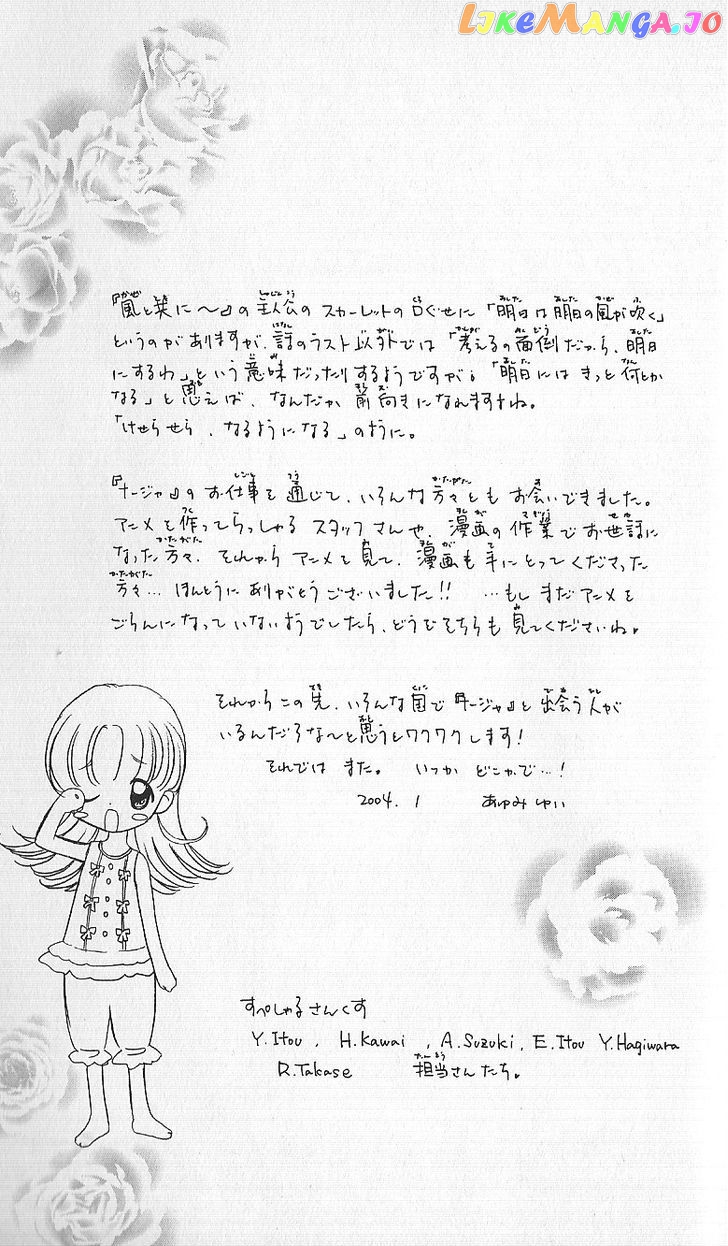 LIKEMANGA.IO
『風と共に〜』の主人公のスカーレットの口ぐせに「明日は明日の風が吹く」
というのがありますが、話のラスト以外では「考えるの面倒だから、明日
にするわ」という意味だったりするようですが；「明日にはきっと何とか
なる」と思えば、なんだか前向きになれますよね。
「けせらせら、なるようになる」のように。
『ナージャ』のお仕事を通じて、いろんな方々ともお会いできました。
アニメを作ってらっしゃるスタッフさんや、漫画の作業でお世話に
なった方々、それからアニメを見て、漫画も手にとってくださった
方々… ほんとうにありがとうございました!! …もしまだアニメを
ごらんになっていないようでしたら、どうぞそちらも見てくださいね。
それからこの先、いろんな国で『ナージャ』と出会う人が
いるんだろな〜と思うとワクワクします!
それでは また。 いつか どこかで…!
2004. 1 あゆみゆい
すぺしゃるさんくす
Y.Itou, H.Kawai, A.Suzuki, E.Itou Y.Hagiwara
R.Takase 担当さんたち。